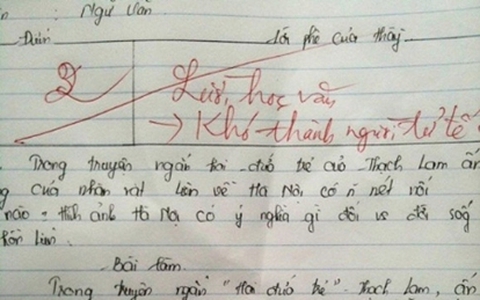 : Ngữ Văn
Điểm
Lời phê của thầy
2
Lười học văn
→ Khó thành người tử tế
Trong truyện ngắn Hai đứa trẻ của Thạch Lam ấn
của nhân vật Liên về Hà Nội có n nét nổi
nào hình ảnh Hà Nội có ý nghĩa gì đối vs đời sống
Liên.
Bài làm.
Trong truyện ngắn "Hai đứa trẻ" Thạch Lam, ấn